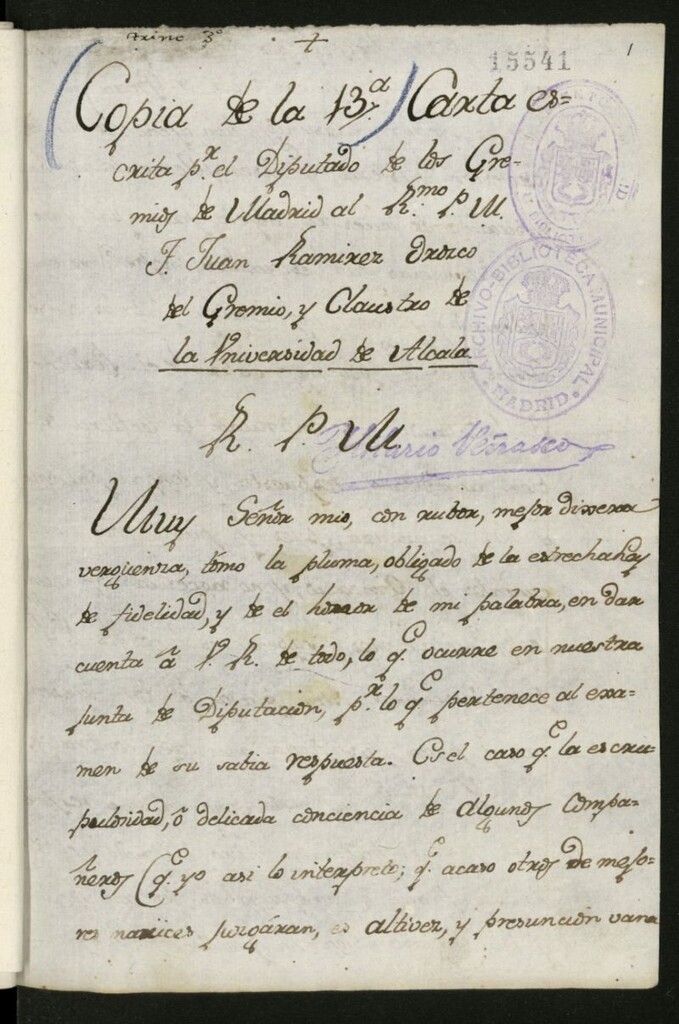 +
15541
1
Copia de la 13.ª Carta es=
crita p.r el Diputado de los Gre-
mios de Madrid al R.mo P. M.
F. Juan Ramirez Orozco
del Gremio, y Claustro de
la Vniversidad de Alcala
ARCHIVO-BIBLIOTECA MUNICIPAL
MADRID
R. P. M.
Muy Señor mio, con rubor, mejor dixera
verguenza, tómo la pluma, obligado de la estrecha ley
de fidelidad, y de el honor de mi palabra, en dar
cuenta â V. R. de todo, lo q.e ocurre en nuestra
junta de Diputacion, p.r lo q.e pertenece al exa=
men de su sabia respuesta. Es el caso q.e la escru=
pulosidad, ô delicada conciencia de algunos compa=
ñeros (q.e yo asi lo interpreto; q.e acaso otros de mejo=
res narices juzgáran, es altivez, y presuncion vana